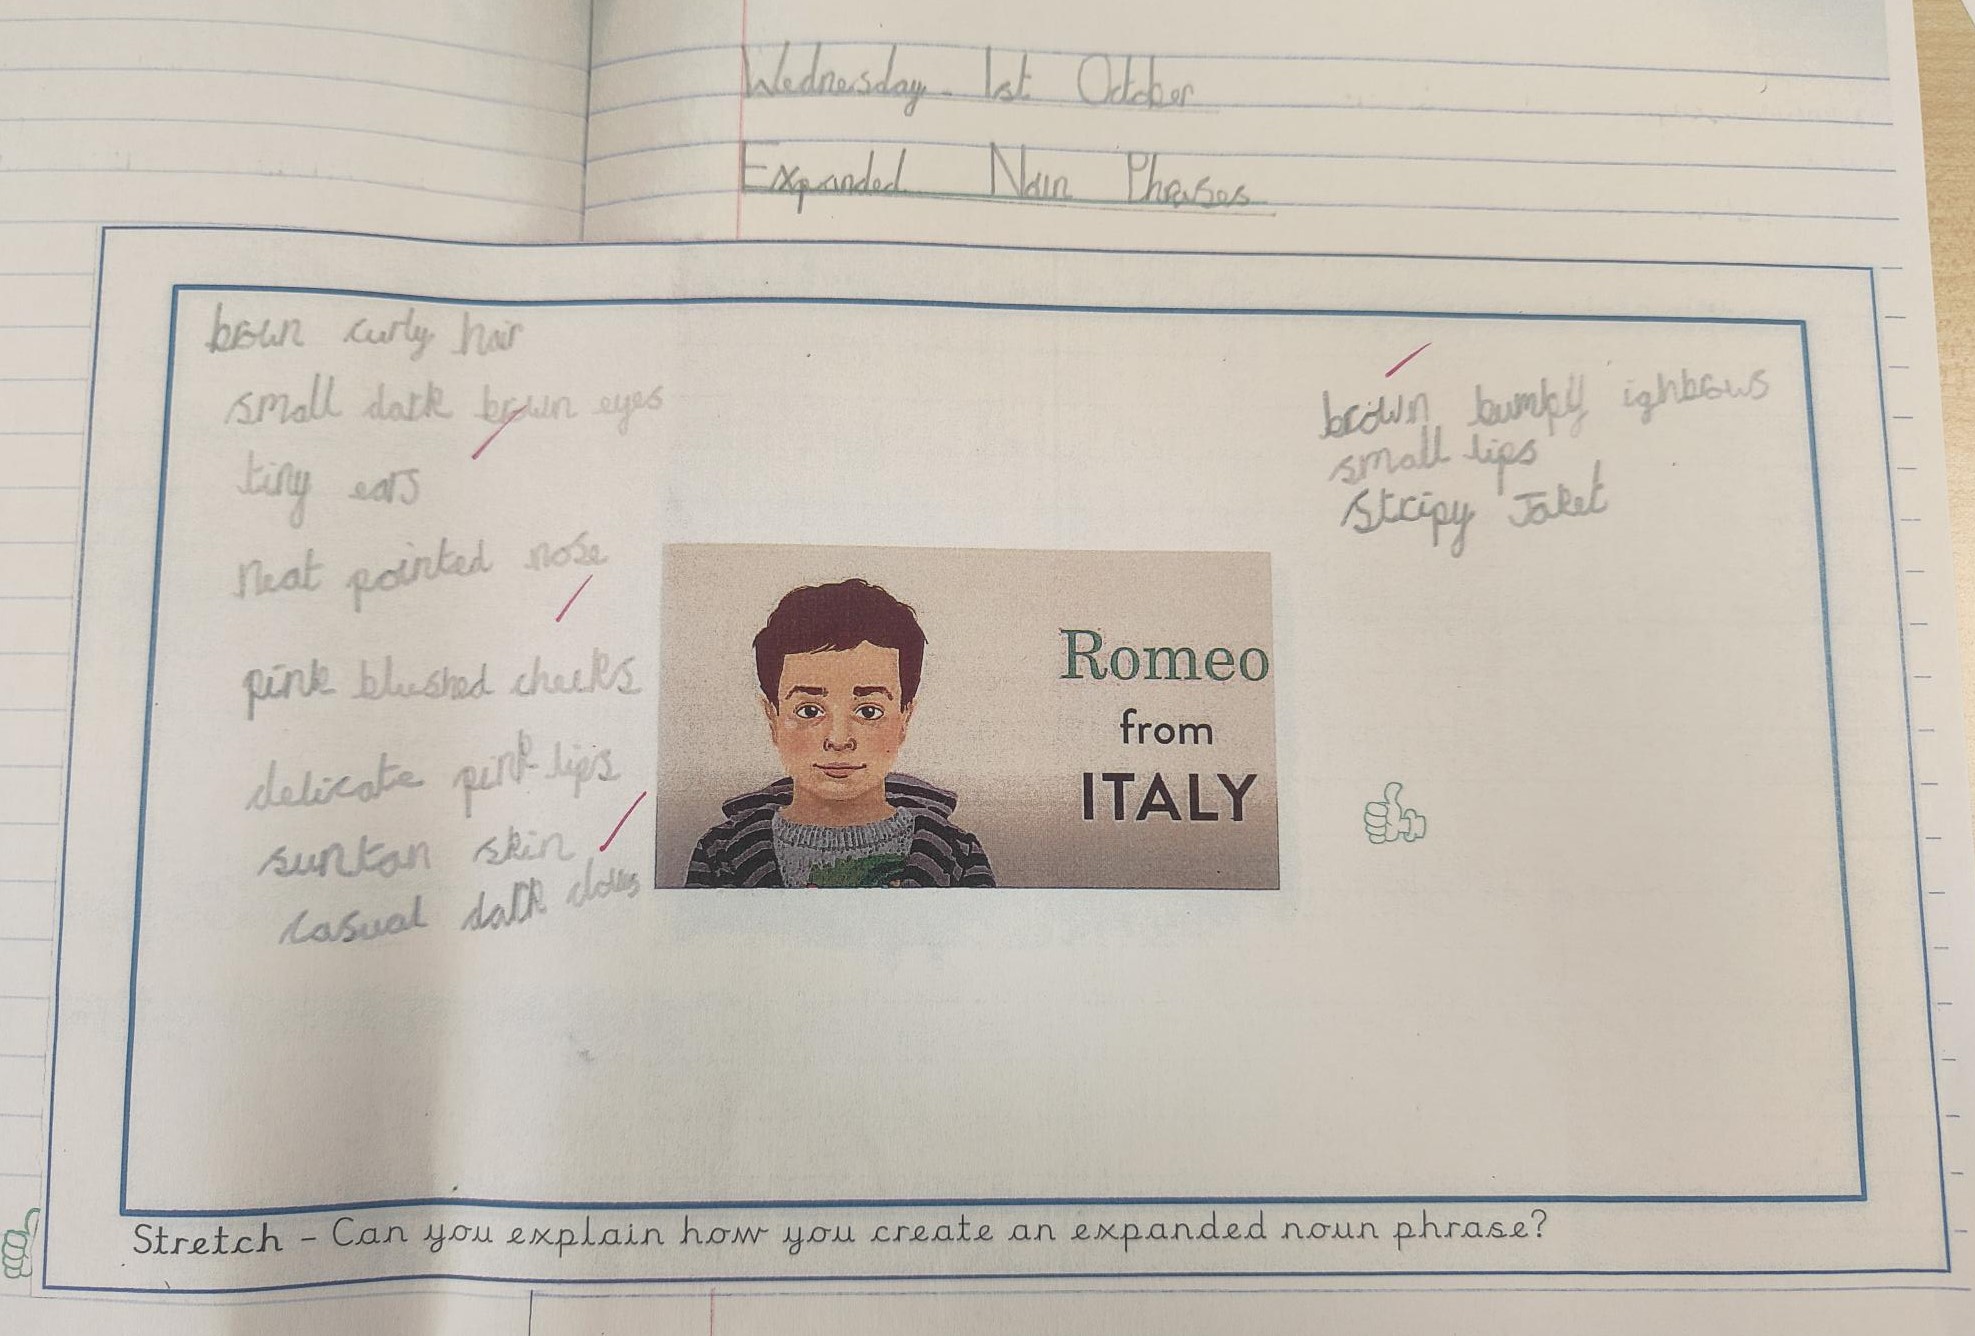 Wednesday 1st October
Expanded Noun Phrases
brown curly hair
small dark brown eyes
tiny ears
Neat pointed nose
pink blushed cheeks
delicate pink lips
suntan skin
casual dark
brown bumpy ighbrows
small lips
Stripy Jaket
Romeo
from
ITALY
Stretch – Can you explain how you create an expanded noun phrase?